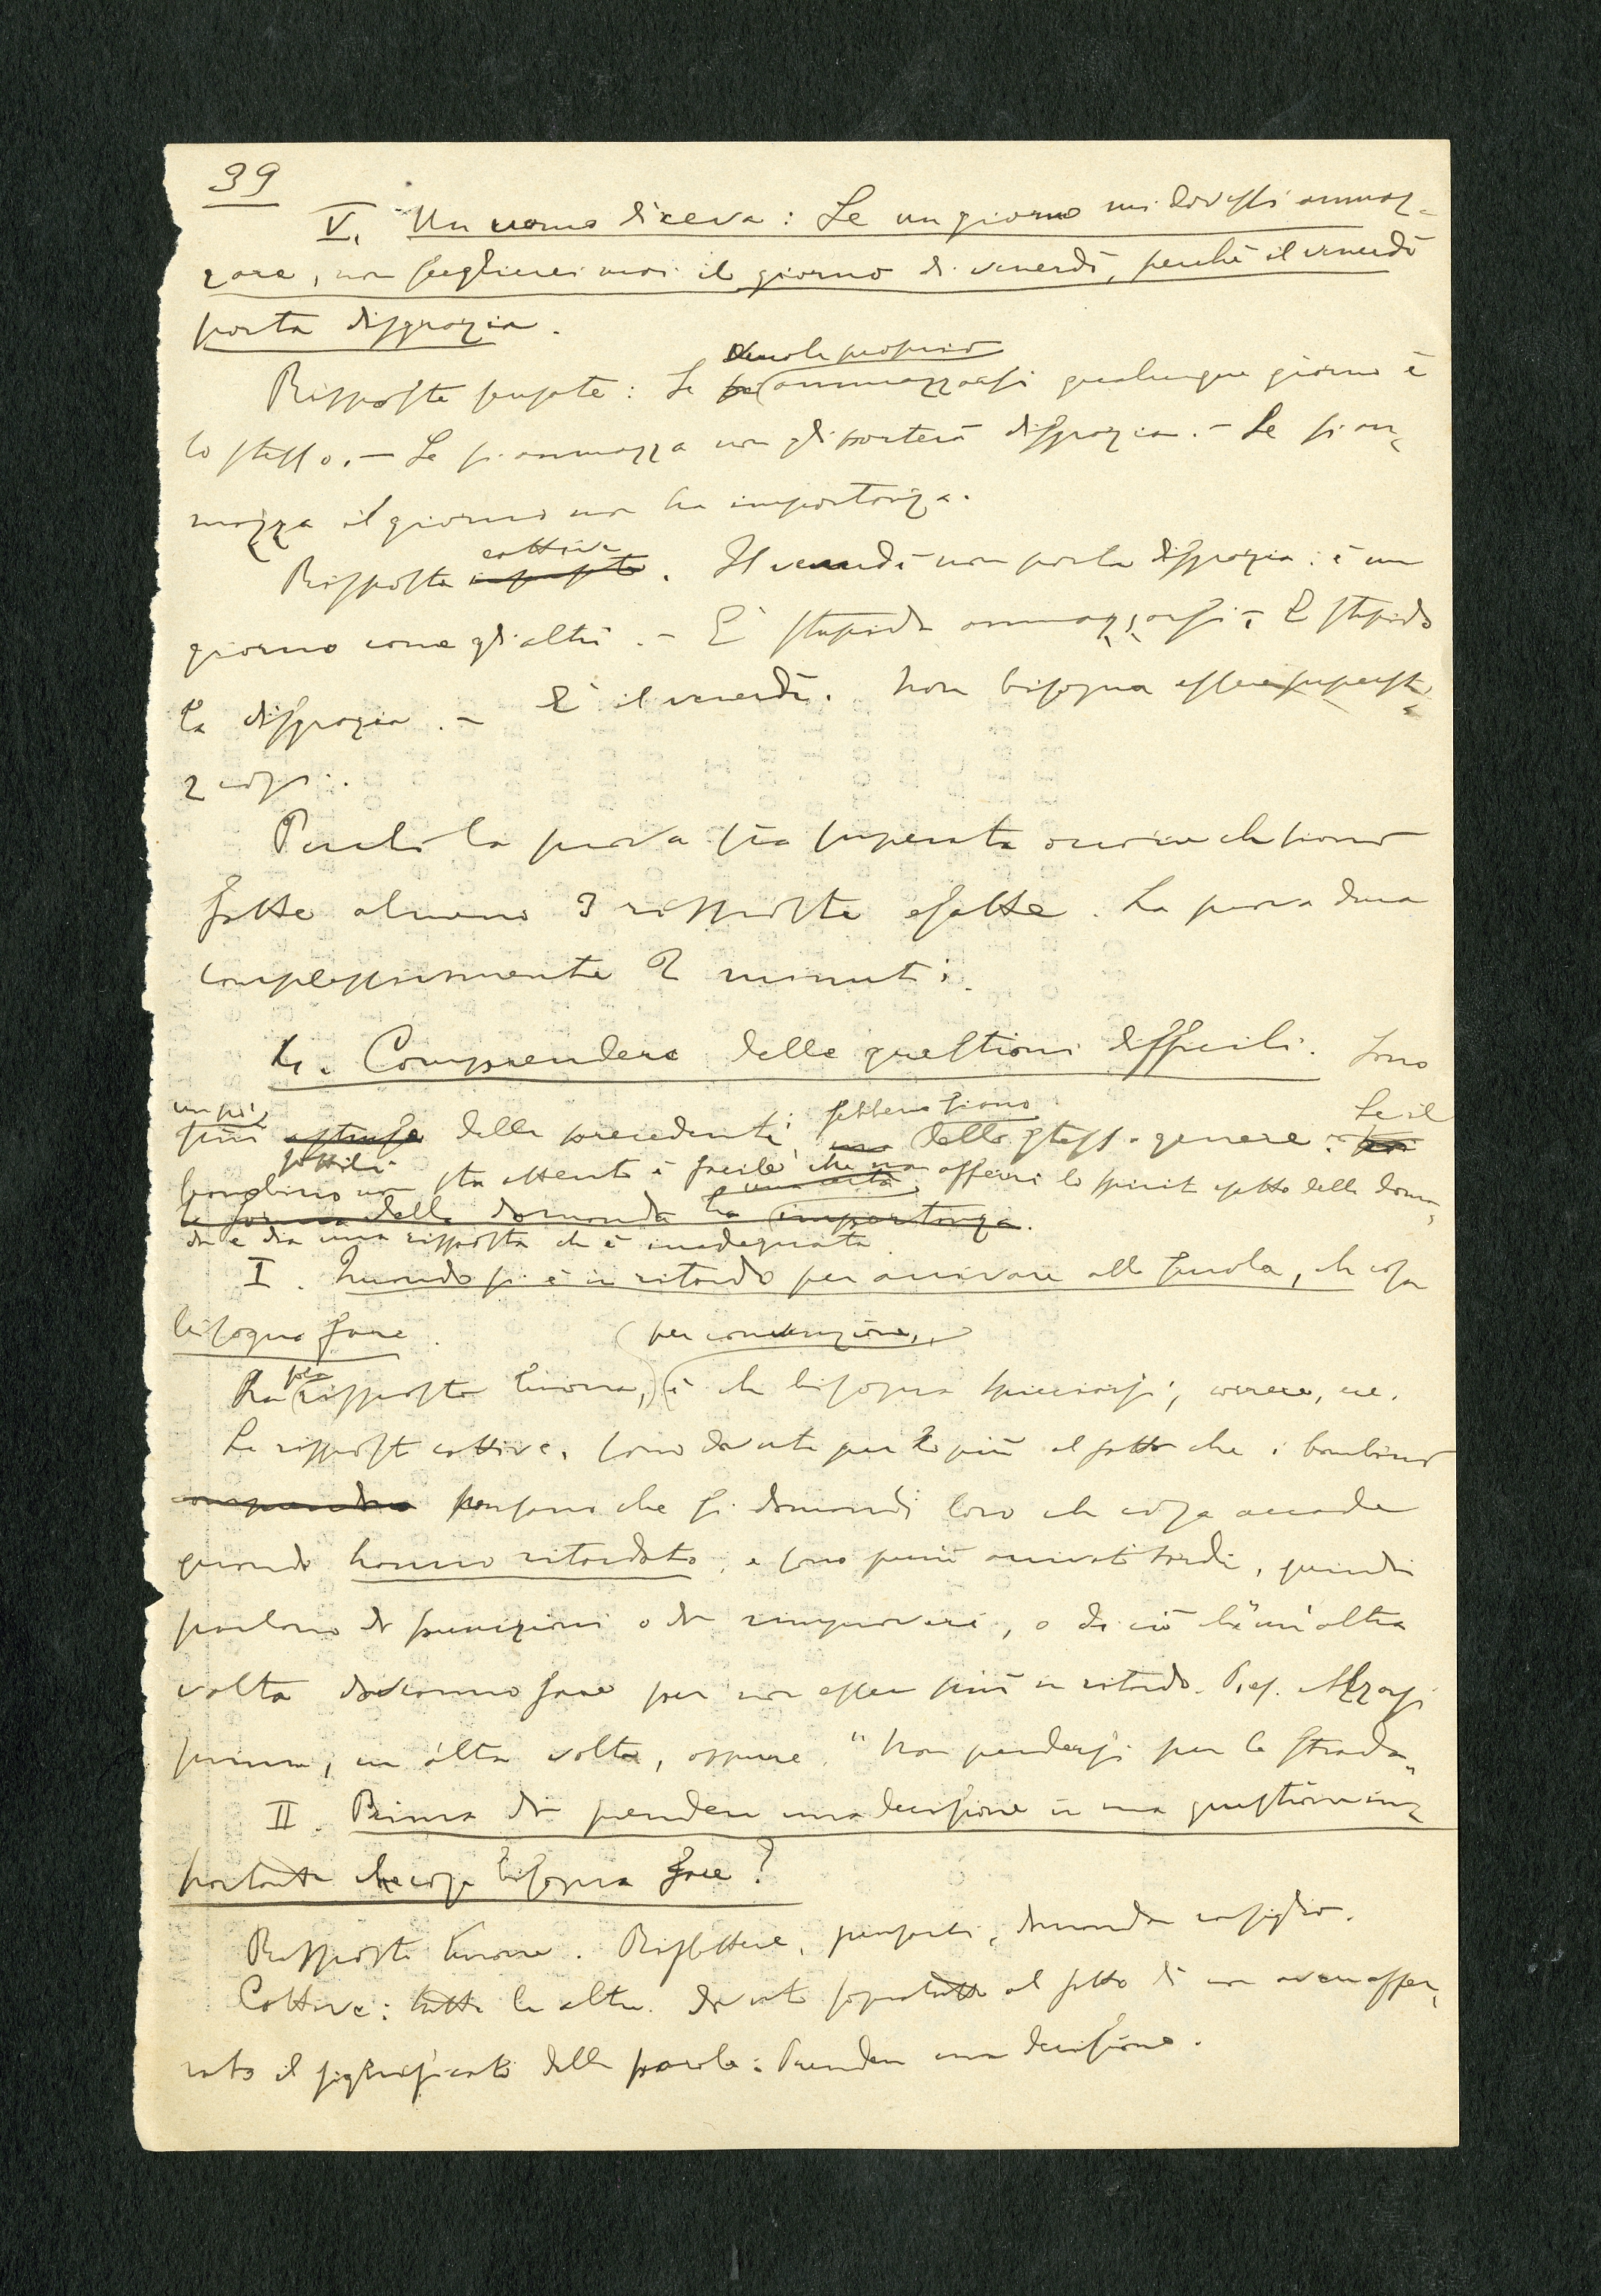 39
V. Un uomo diceva: Se un giorno mi dovessi ammaz-
zare, non sceglierei mai il giorno di venerdì, perchè il venerdì
porta disgrazia.
vuole proprio
Risposte sensate: Se ammazzarsi qualunque giorno è
lo stesso. – Se si ammazza non gli porterà disgrazia. – Se si am-
mazza il giorno non ha importanza.
cattive
Risposte insensate. Il venerdì non porta disgrazia: è un
giorno come gli altri. – È stupido ammazzarsi – È stupido
la disgrazia. – È il venerdì. Non bisogna essere supersti-
ziosi.
Perchè la prova sia superata occorre che siano
fatte almeno 3 risposte esatte. La prova dura
complessivamente 2 minuti.
4. Comprendere delle questioni difficili. Sono
un pò sebbene siano Se il
più astruse delle precedenti dello stesso genere:
sottili
bambino non sta attento è facile che non afferri lo spirito esatto della doman-
una certa
la forma della domanda ha importanza.
da e dia una risposta che è inadeguata.
I. Quando si è in ritardo per arrivare alla scuola, che cosa
bisogna fare.
per convenzione,
sola
La risposta buona, è che bisogna spicciarsi, correre, ecc.
Le risposte cattive, sono dovute per lo più al fatto che i bambini
comprendono pensano che si domandi loro che cosa accade
quando hanno ritardato, e sono arrivati tardi, quindi
parlano di punizioni o di rimproveri, o di ciò che un'altra
volta dovranno fare per non esser più in ritardo. P. es. Alzarsi
prima, un'altra volta, oppure "Non perdersi per la strada"
II. Prima di prendere una decisione in una questione im-
portante che cosa bisogna fare?
Risposte buone. Riflettere, pensarci, domandar consiglio.
Cattive: tutte le altre. dovute sopratutto al fatto di non aver affer-
rato il significato delle parole: Prendere una decisione.